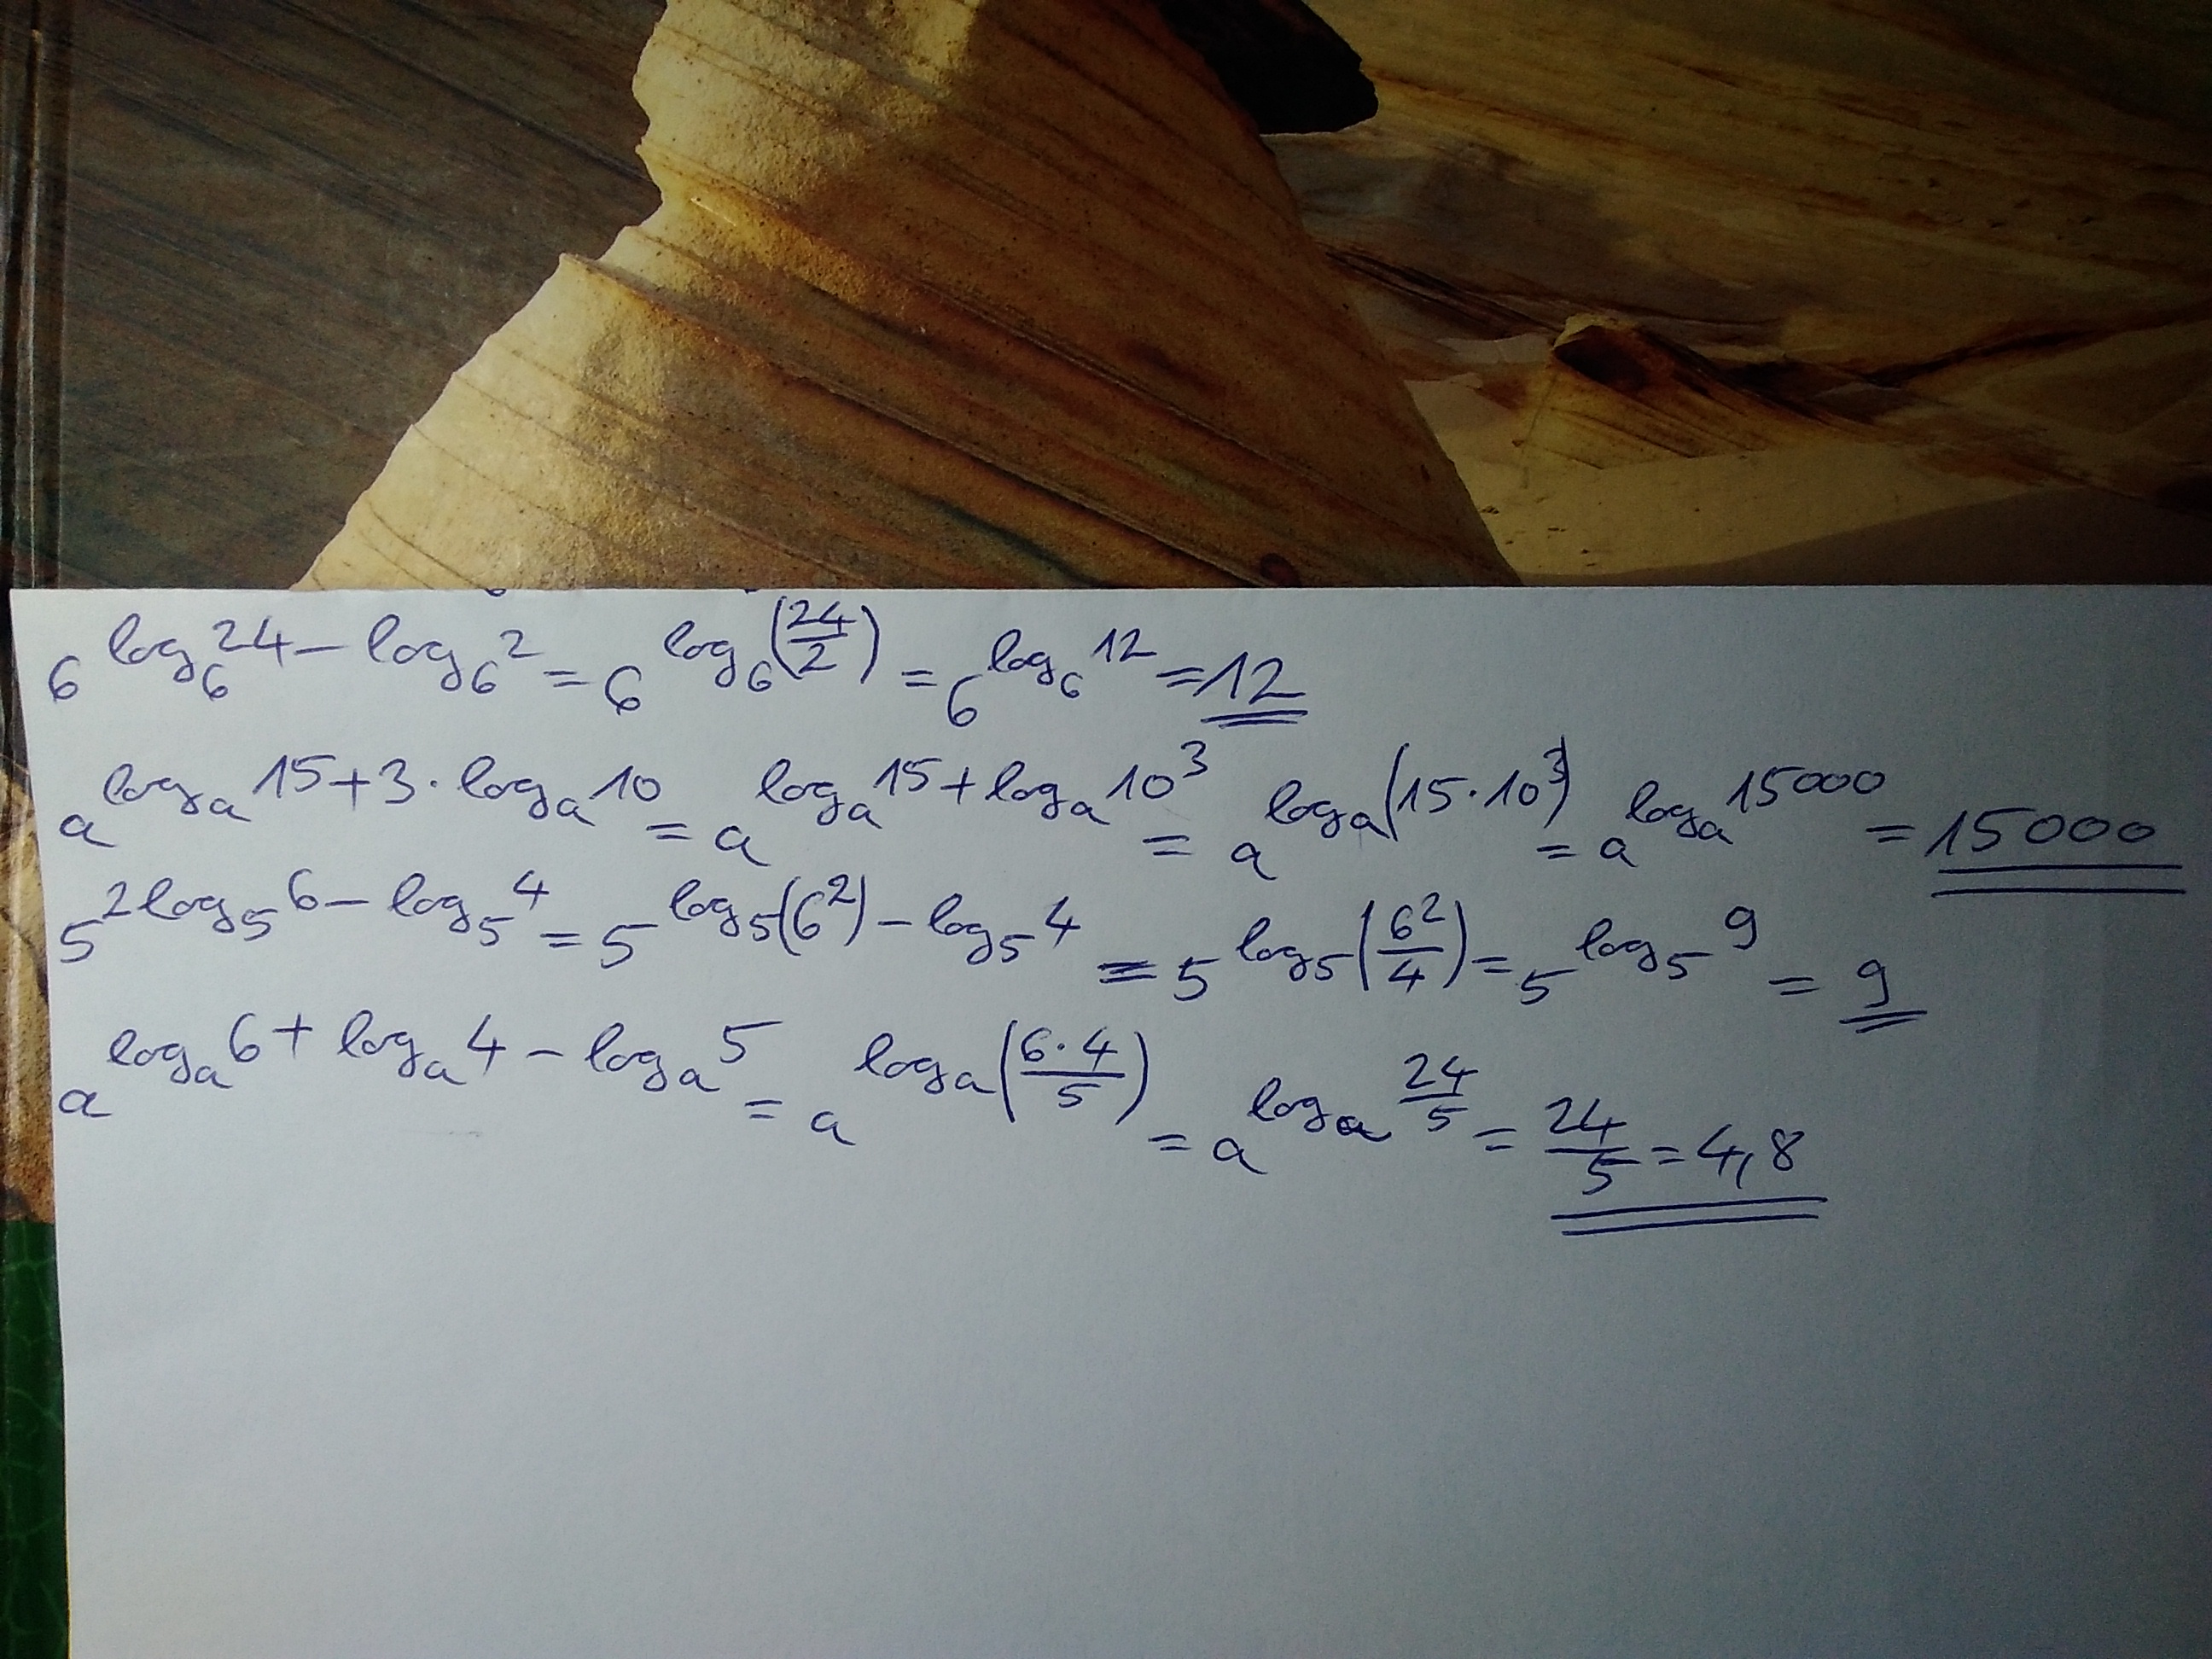 6^(log_6 24 - log_6 2) = 6^(log_6 (24/2)) = 6^(log_6 12) = 12
a^(log_a 15 + 3 · log_a 10) = a^(log_a 15 + log_a 10^3) = a^(log_a (15 · 10^3)) = a^(log_a 15000) = 15000
5^(2 log_5 6 - log_5 4) = 5^(log_5 (6^2) - log_5 4) = 5^(log_5 (6^2/4)) = 5^(log_5 9) = 9
a^(log_a 6 + log_a 4 - log_a 5) = a^(log_a (6 · 4/5)) = a^(log_a 24/5) = 24/5 = 4,8